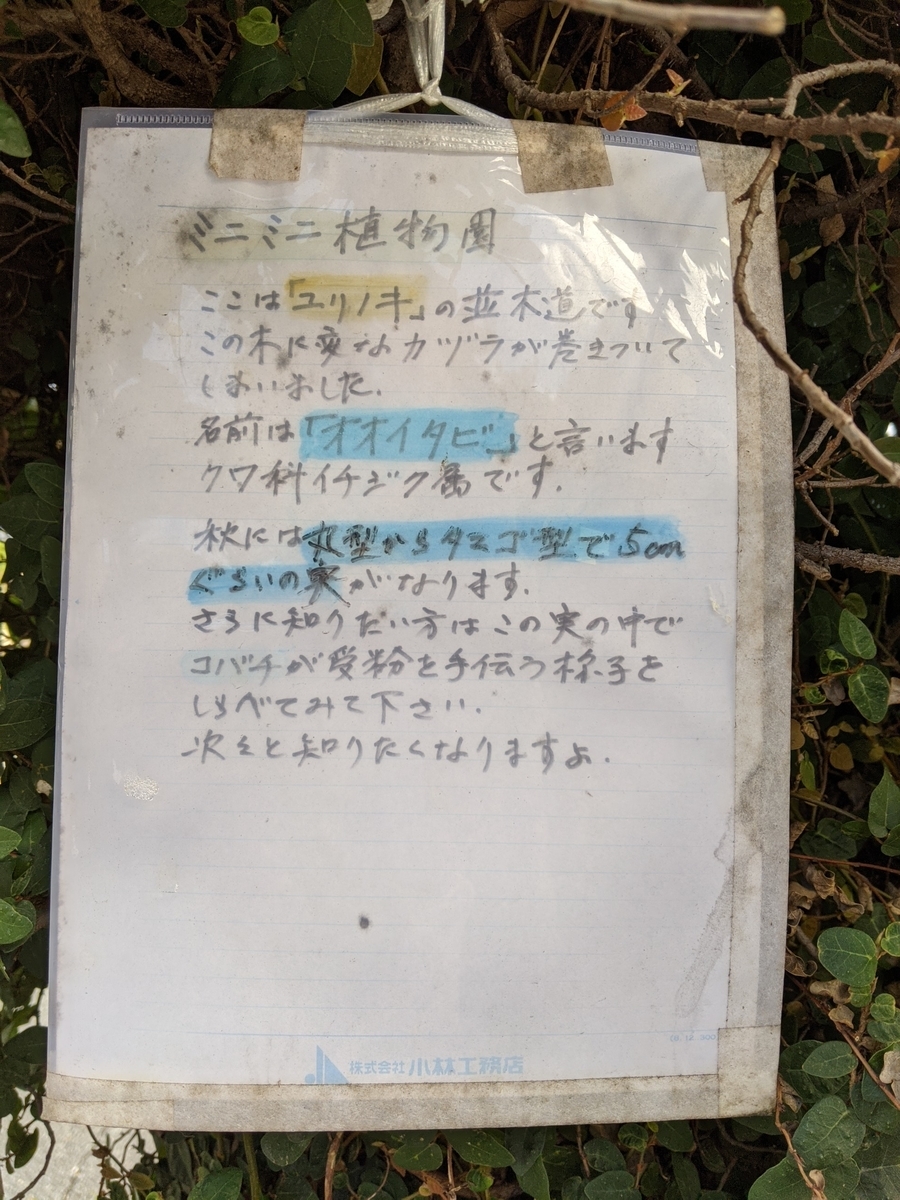 ミニミニ植物園
ここは「ユリノキ」の並木道です
この木に変なカヅラが巻きついて
しまいました.
名前は「オオイタビ」と言います
クワ科イチジク属です.
秋には丸型からタマゴ型で5cm
ぐらいの実がなります.
さらに知りたい方はこの実の中で
コバチが受粉を手伝う様子を
しらべてみて下さい.
次々と知りたくなりますよ.
株式会社 小林工務店